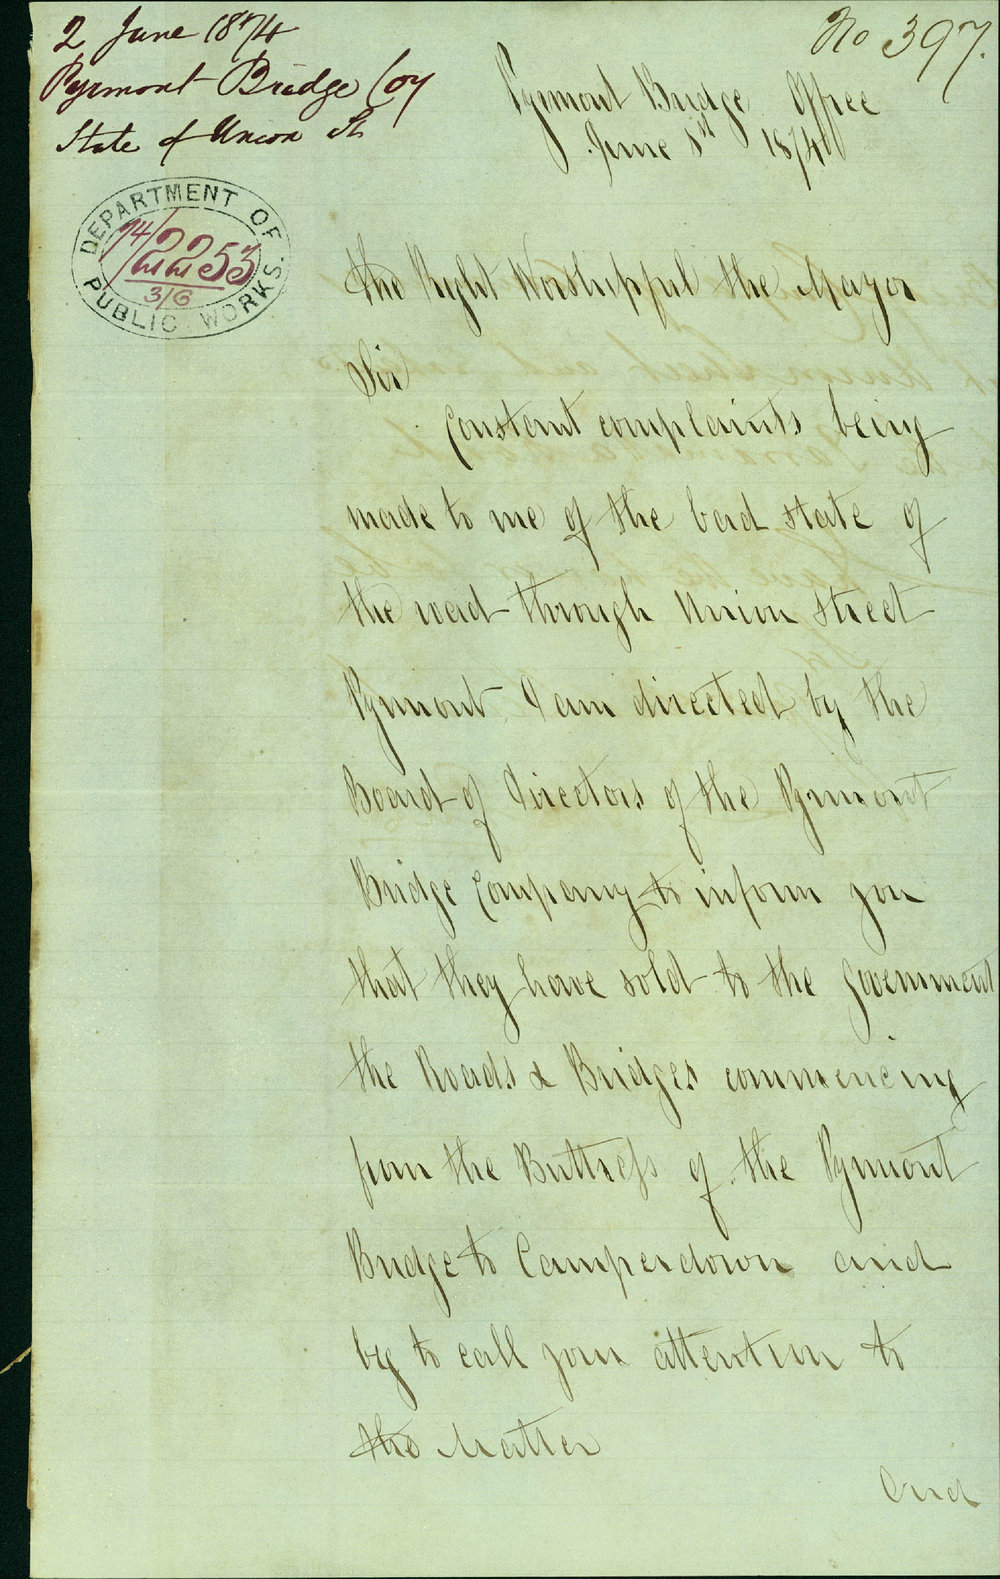 2 June 1874
Pyrmont Bridge Coy
State of Union St
No 397.
Pyrmont Bridge Office
June 1st 1874
DEPARTMENT OF
74/2253
3/6
PUBLIC WORKS.
The Right Worshipful the Mayor
Sir
Constant complaints being
made to me of the bad state of
the road through Union Street
Pyrmont I am directed by the
Board of Directors of the Pyrmont
Bridge Company to inform you
that they have sold to the Government
the Roads & Bridges commencing
from the Buttress of the Pyrmont
Bridge to Camperdown and
beg to call your attention to
the Matter
And